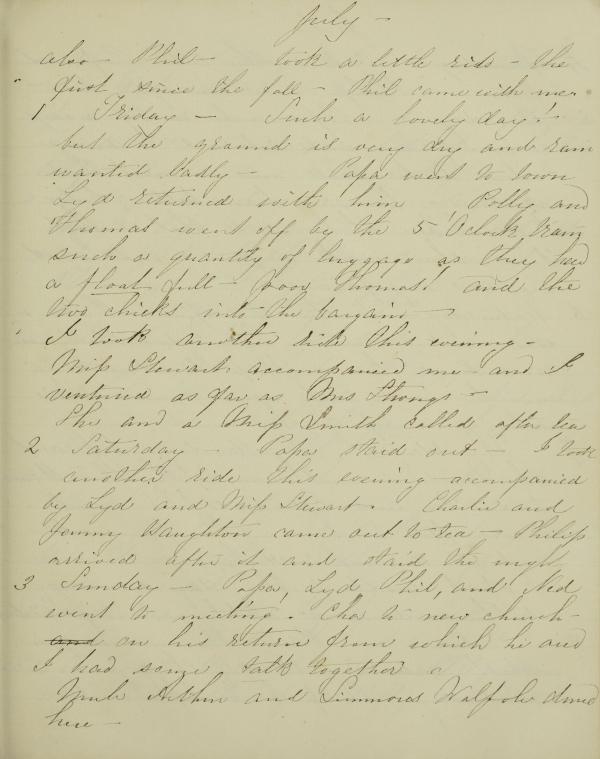 July -
also Phil - took a little ride - the
first since the fall - Phil came with me.
1 Friday - Such a lovely day!
but the ground is very dry and rain
wanted badly - Papa went to town
Lyd returned with him Polly and
Thomas went off by the 5 O'Clock train
such a quantity of luggage as they had
a float full - poor Thomas! and the
two chicks into the bargain -
I took another ride this evening -
Miss Stewart accompanied me - and I
ventured as far as Mrs Strongs -
She and a Miss Smith called after tea
2 Saturday - Papa staid out - I took
another ride this evening - accompanied
by Lyd and Miss Stewart. Charlie and
Jenny Haughton came out to tea - Philip
arrived after it and staid the night
3 Sunday - Papa, Lyd Phil, and Ned
went to meeting. Cha to new church -
and on his return from which he and
I had some talk together
Arthur and Simmons Walpole dined
here -